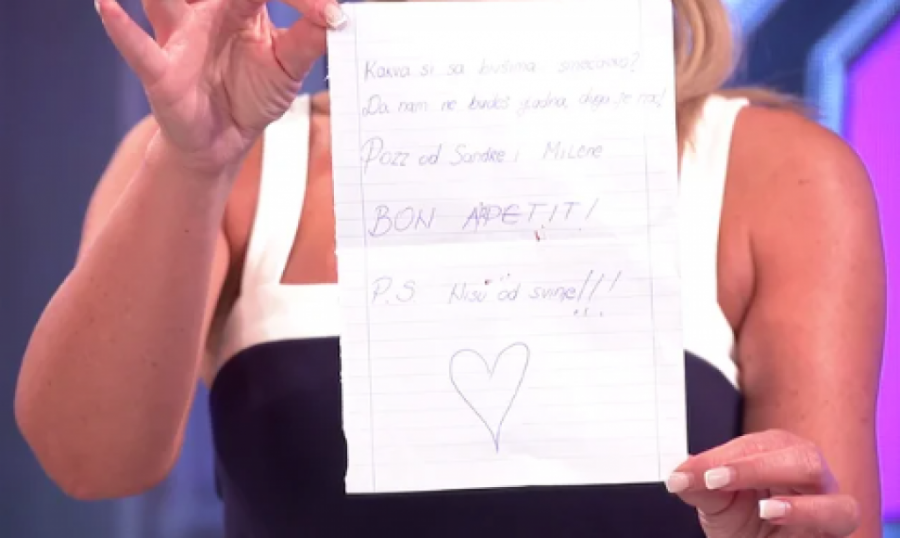 Kakva si sa bušima smoćavko?
Da nam ne budeš gladna, duga je noć!
Pozz od Sandre i Milene
BON APETIT!
P.S Nisu od svinje!!!